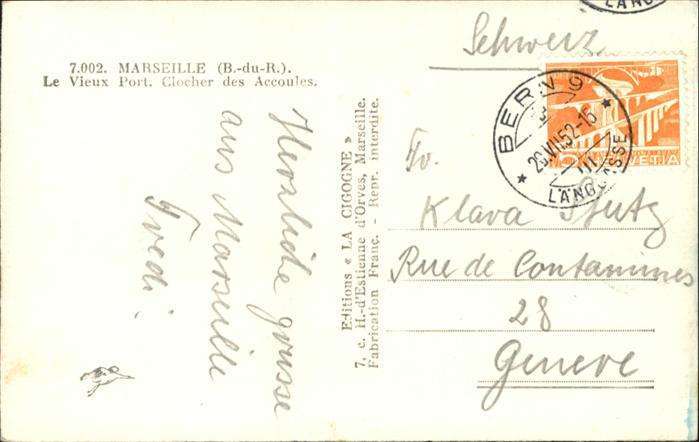 7.002. MARSEILLE (B.-du-R.).
Le Vieux Port. Clocher des Accoules.
Herzliche grüsse
aus Marseille
Fredi.
Editions « LA CIGOGNE »
7, c. H.-d'Estienne d'Orves, Marseille.
Fabrication Franç. - Repr. interdite.
Schweiz
BERN 9
LÄNGGASSE
HELVETIA
Fr.
Klara Stutz
Rue de Contamines
28
Geneve